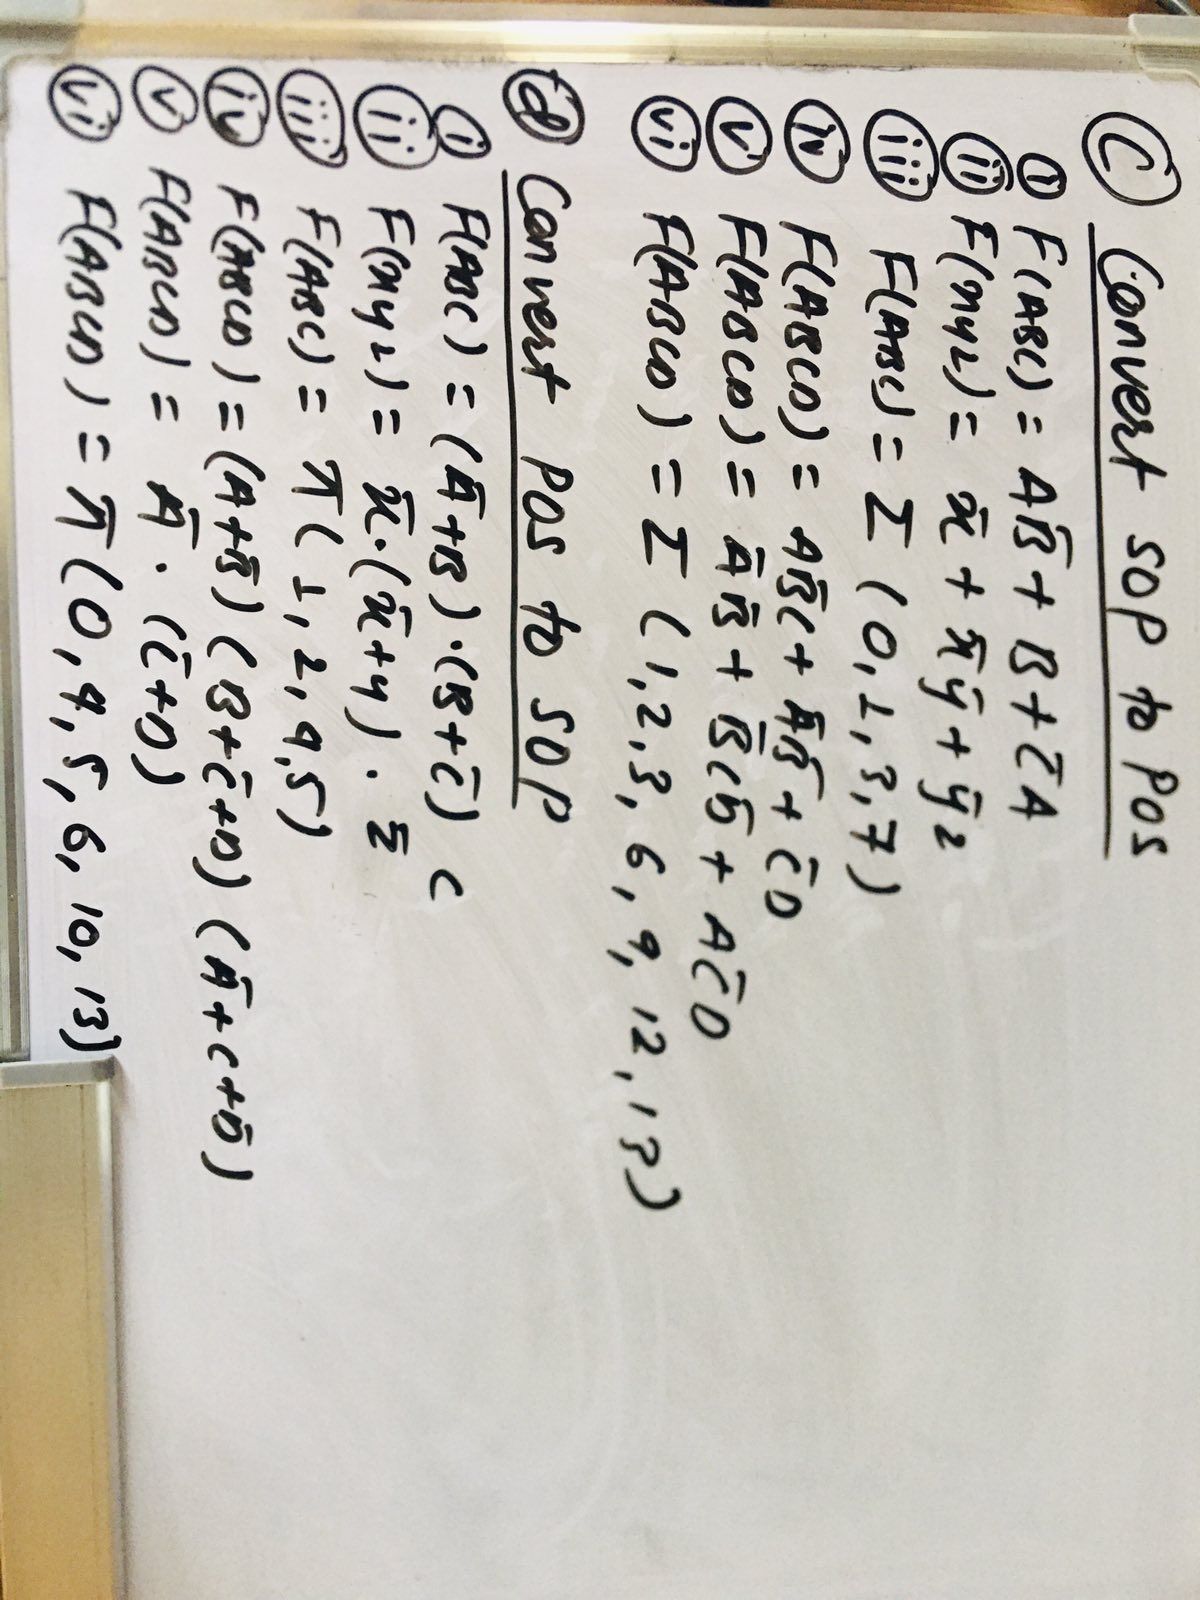 (c) Convert SOP to POS
(i) F(ABC) = AB̅ + B + C̅A
(ii) F(xyz) = x̅ + x̅y̅ + y̅z
(iii) F(ABC) = Σ (0, 1, 3, 7)
(iv) F(ABCD) = AB̅C + A̅B̅ + C̅D
(v) F(ABCD) = A̅B̅ + B̅CD̅ + AC̅D
(vi) F(ABCD) = Σ (1, 2, 3, 6, 9, 12, 13)
(d) Convert POS to SOP
(i) F(ABC) = (A̅+B)·(B+C̅) C
(ii) F(xyz) = x̅·(x̅+y)·z̅
(iii) F(ABC) = π(1, 2, 4, 5)
(iv) F(ABCD) = (A+B̅) (B+C̅+D) (A̅+C+D̅)
(v) F(ABCD) = A̅·(C̅+D)
(vi) F(ABCD) = π(0, 4, 5, 6, 10, 13)